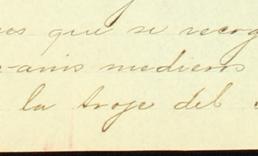 que se recog
medieros
la troje del